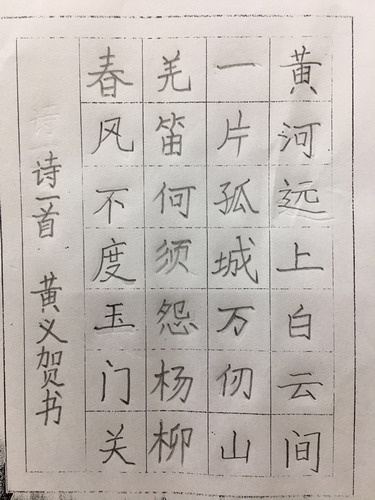 黄河远上白云间
一片孤城万仞山
羌笛何须怨杨柳
春风不度玉门关
诗一首 黄义贺书